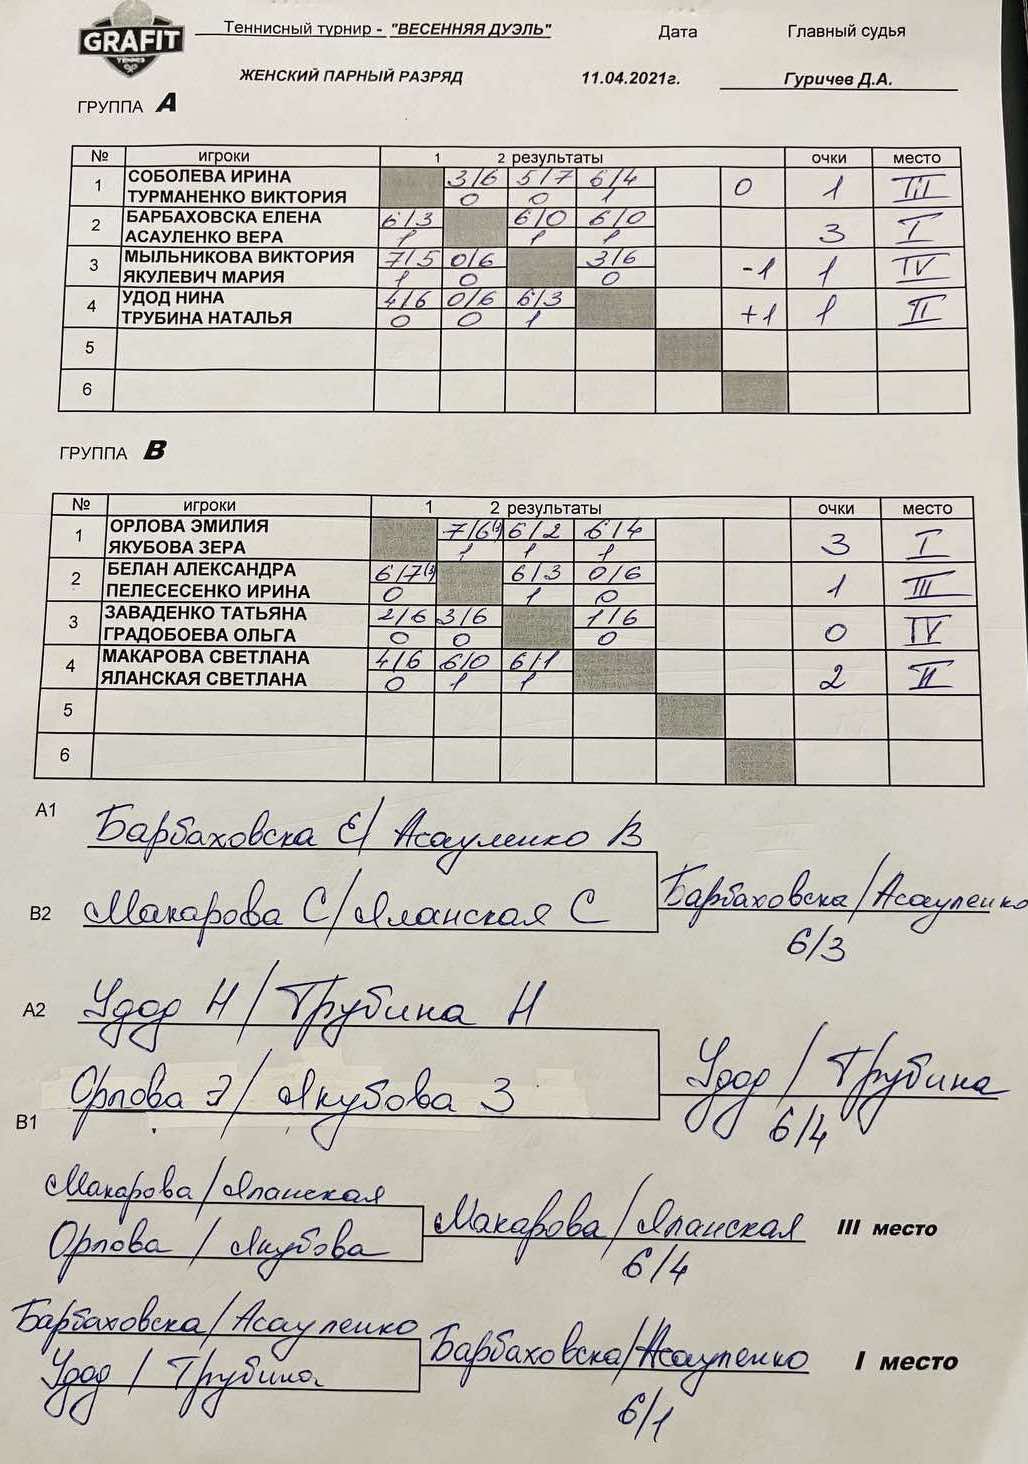 GRAFIT
TENNIS
Теннисный турнир - "ВЕСЕННЯЯ ДУЭЛЬ" Дата Главный судья
ЖЕНСКИЙ ПАРНЫЙ РАЗРЯД 11.04.2021г. Гуричев Д.А.
ГРУППА А
№ игроки 1 2 результаты очки место
1 СОБОЛЕВА ИРИНА 3/6 5/7 6/4 0 1 III
ТУРМАНЕНКО ВИКТОРИЯ 0 0 1
2 БАРБАХОВСКА ЕЛЕНА 6/3 6/0 6/0 3 I
АСАУЛЕНКО ВЕРА 1 1 1
3 МЫЛЬНИКОВА ВИКТОРИЯ 7/5 0/6 3/6 -1 1 IV
ЯКУЛЕВИЧ МАРИЯ 1 0 0
4 УДОД НИНА 4/6 0/6 6/3 +1 1 II
ТРУБИНА НАТАЛЬЯ 0 0 1
5
6
ГРУППА В
№ игроки 1 2 результаты очки место
1 ОРЛОВА ЭМИЛИЯ 7/6(3) 6/2 6/4 3 I
ЯКУБОВА ЗЕРА 1 1 1
2 БЕЛАН АЛЕКСАНДРА 6/7(3) 6/3 0/6 1 III
ПЕЛЕСЕСЕНКО ИРИНА 0 1 0
3 ЗАВАДЕНКО ТАТЬЯНА 2/6 3/6 1/6 0 IV
ГРАДОБОЕВА ОЛЬГА 0 0 0
4 МАКАРОВА СВЕТЛАНА 4/6 6/0 6/1 2 II
ЯЛАНСКАЯ СВЕТЛАНА 0 1 1
5
6
А1 Барбаховска Е/ Асауленко В
В2 Макарова С/Яланская С Барбаховска/Асауленко
6/3
А2 Удод Н/Трубина Н
Удод / Трубина
6/4
В1 Орлова Э/ Якубова З
Макарова/Яланская
Орлова / Якубова
Макарова/Яланская III место
6/4
Барбаховска/Асауленко
Удод / Трубина
Барбаховска/Асауленко I место
6/1